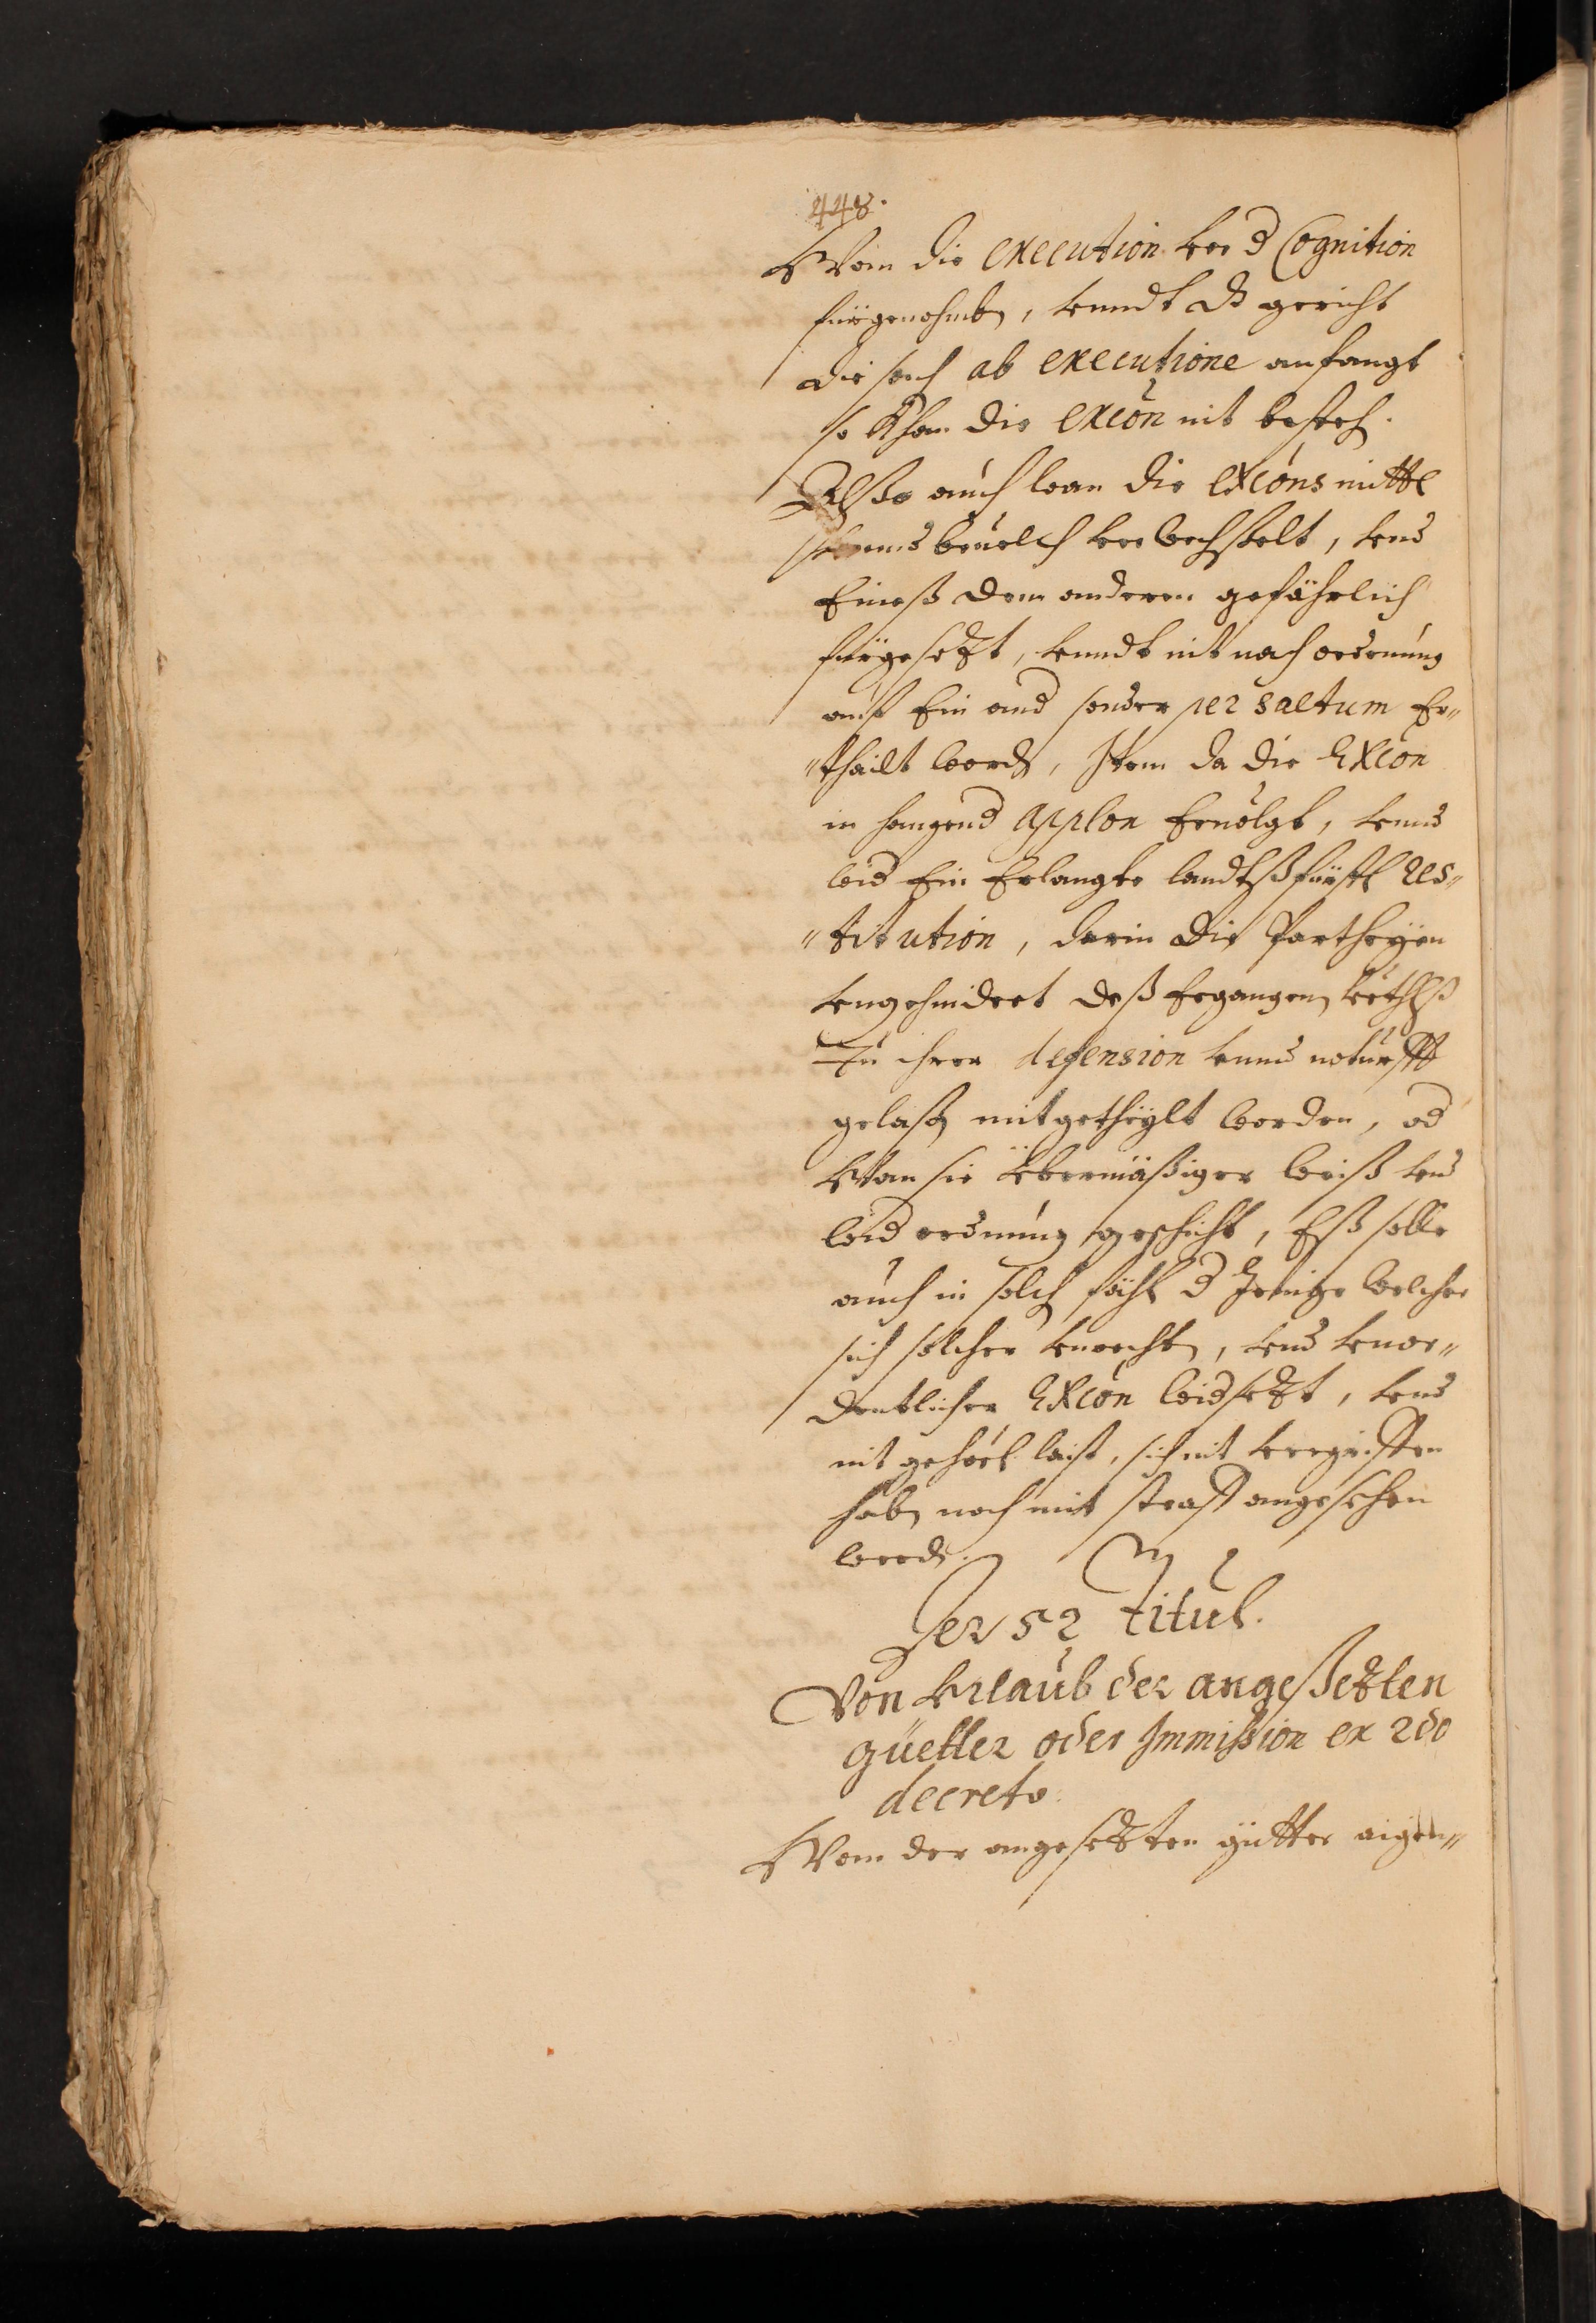 448.
Wan die execution vor d Cognition
fürgenohmen, vnndt dz gericht
die sach ab executione anfangt
so khan die excon nit besteh.
Alßo auch wan die excons mittl
beuelch verwechslet, vnd
Eineß dem anderen gefährlich
fürgesezt, vnndt nit nach ordnung
auf Ein and sonder per saltum Er„
„thailt word, Item da die Excon
in hangend applon Eruolgt, vnnd
wid Ein Erlangte landtßfürstl Res„
„titution, darin die Partheyen
vngehindert deß Ergangen vrthlß
Zu ihrer defension vnnd noturfft
gelaß mitgetheylt worden, od
Wan sie vbermäßiger weiß vnd
wid ordnung geschicht, Eß solle
auch in solch fähl d Jenige welcher
sich solcher vnrechten, vnd vnor„
dentlicher Excon widsezt, vnd
nit gehörl laist, sich nit vergriffen
haben noch mit straff angesehen
werd.
Der 52 Titul.
Von Vrlaub der angesezten
güetter oder Immission ex 2do
decreto.
Wan der angesezten gütter aigen„